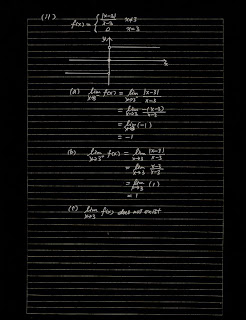 (11) f(x) = { |x-3|/x-3 x≠3
0 x=3
y
x
(a) lim x→3⁻ f(x) = lim x→3⁻ |x-3|/x-3
= lim x→3 -(x-3)/x-3
= lim x→3 (-1)
= -1
(b) lim x→3⁺ f(x) = lim x→3 |x-3|/x-3
= lim x→3 x-3/x-3
= lim x→3 (1)
= 1
(c) lim x→3 f(x) does not exist